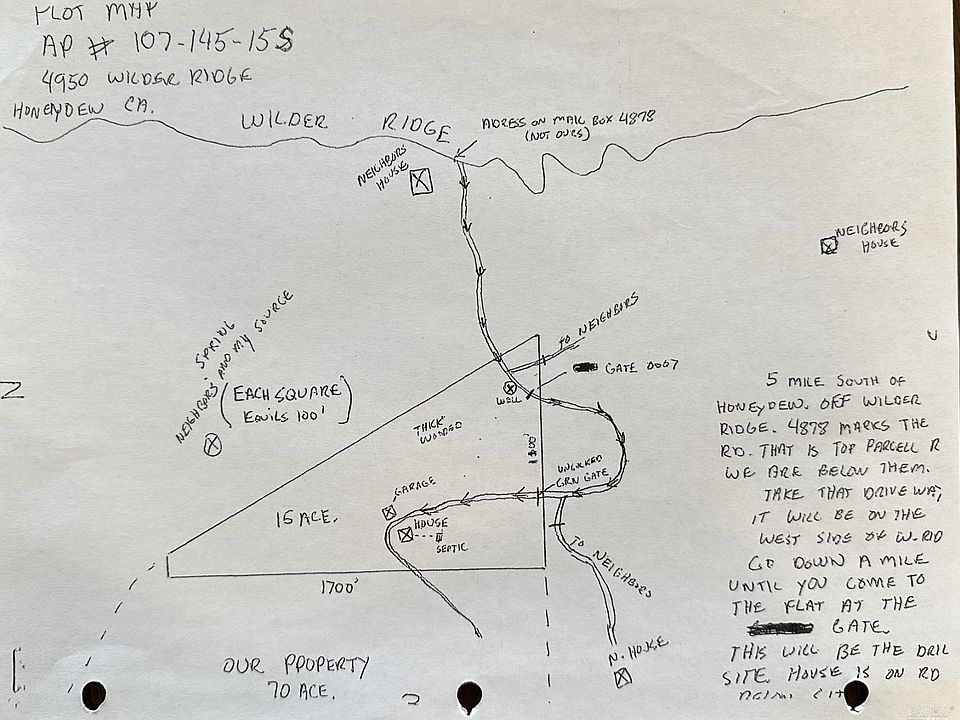 PLOT MAP
AP # 107-145-15S
4950 WILDER RIDGE
HONEYDEW CA.
WILDER RIDGE
ADRESS ON MAIL BOX 4878
(NOT OURS)
NEIGHBORS
HOUSE
NEIGHBORS
HOUSE
NEIGHBORS' SPRING
AND MY SOURCE
(EACH SQUARE
EQUILS 100')
TO NEIGHBORS
GATE 0007
WELL
THICK
WOODED
UNLOCKED
GRN GATE
GARAGE
HOUSE
SEPTIC
15 ACE.
1700'
TO NEIGHBORS
N. HOUSE
OUR PROPERTY
70 ACE.
5 MILE SOUTH OF
HONEYDEW. OFF WILDER
RIDGE. 4878 MARKS THE
RD. THAT IS TOP PARCELL R
WE ARE BELOW THEM.
TAKE THAT DRIVE WAY,
IT WILL BE ON THE
WEST SIDE OF W.RID
GO DOWN A MILE
UNTIL YOU COME TO
THE FLAT AT THE
GATE.
THIS WILL BE THE DRIL
SITE. HOUSE IS ON RD